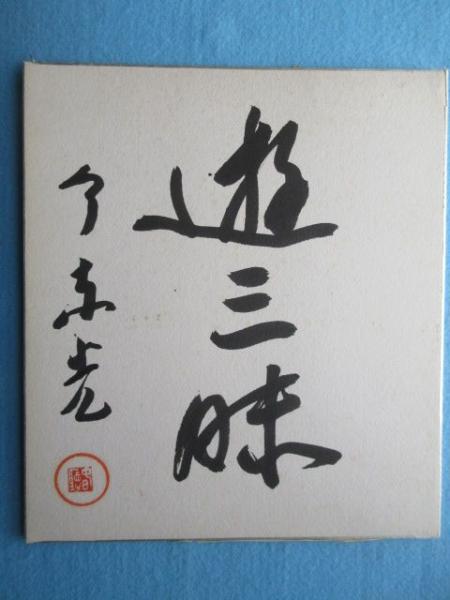 遊三昧
今東光